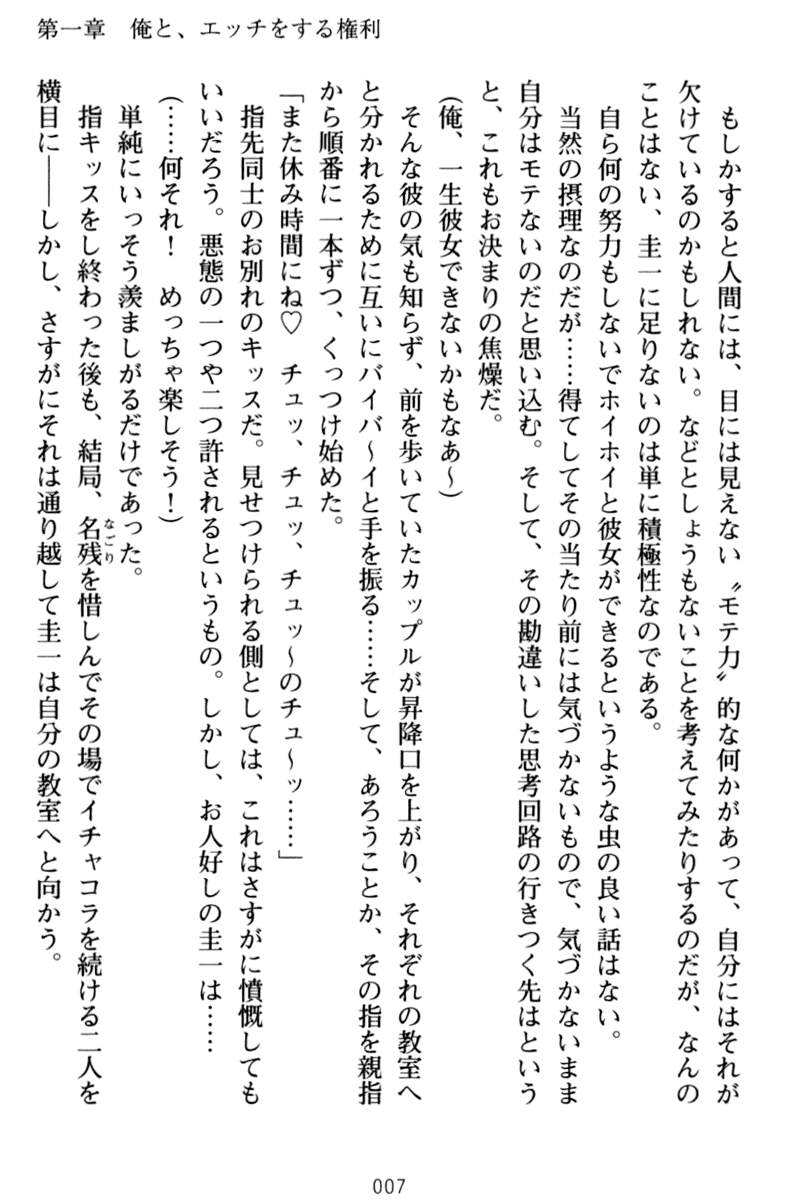 第一章　俺と、エッチをする権利
　もしかすると人間には、目には見えない〝モテ力〟的な何かがあって、自分にはそれが
欠けているのかもしれない。などとしょうもないことを考えてみたりするのだが、なんの
ことはない、圭一に足りないのは単に積極性なのである。
　自ら何の努力もしないでホイホイと彼女ができるというような虫の良い話はない。
　当然の摂理なのだが……得てしてその当たり前には気づかないもので、気づかないまま
自分はモテないのだと思い込む。そして、その勘違いした思考回路の行きつく先はという
と、これもお決まりの焦燥だ。
（俺、一生彼女できないかもなあ～）
　そんな彼の気も知らず、前を歩いていたカップルが昇降口を上がり、それぞれの教室へ
と分かれるために互いにバイバ～イと手を振る……そして、あろうことか、その指を親指
から順番に一本ずつ、くっつけ始めた。
「また休み時間にね♡　チュッ、チュッ、チュッ～のチュ～ッ……」
　指先同士のお別れのキッスだ。見せつけられる側としては、これはさすがに憤慨しても
いいだろう。悪態の一つや二つ許されるというもの。しかし、お人好しの圭一は……
（……何それ！　めっちゃ楽しそう！）
　単純にいっそう羨ましがるだけであった。
　指キッスをし終わった後も、結局、名残なごりを惜しんでその場でイチャコラを続ける二人を
横目に――しかし、さすがにそれは通り越して圭一は自分の教室へと向かう。
007